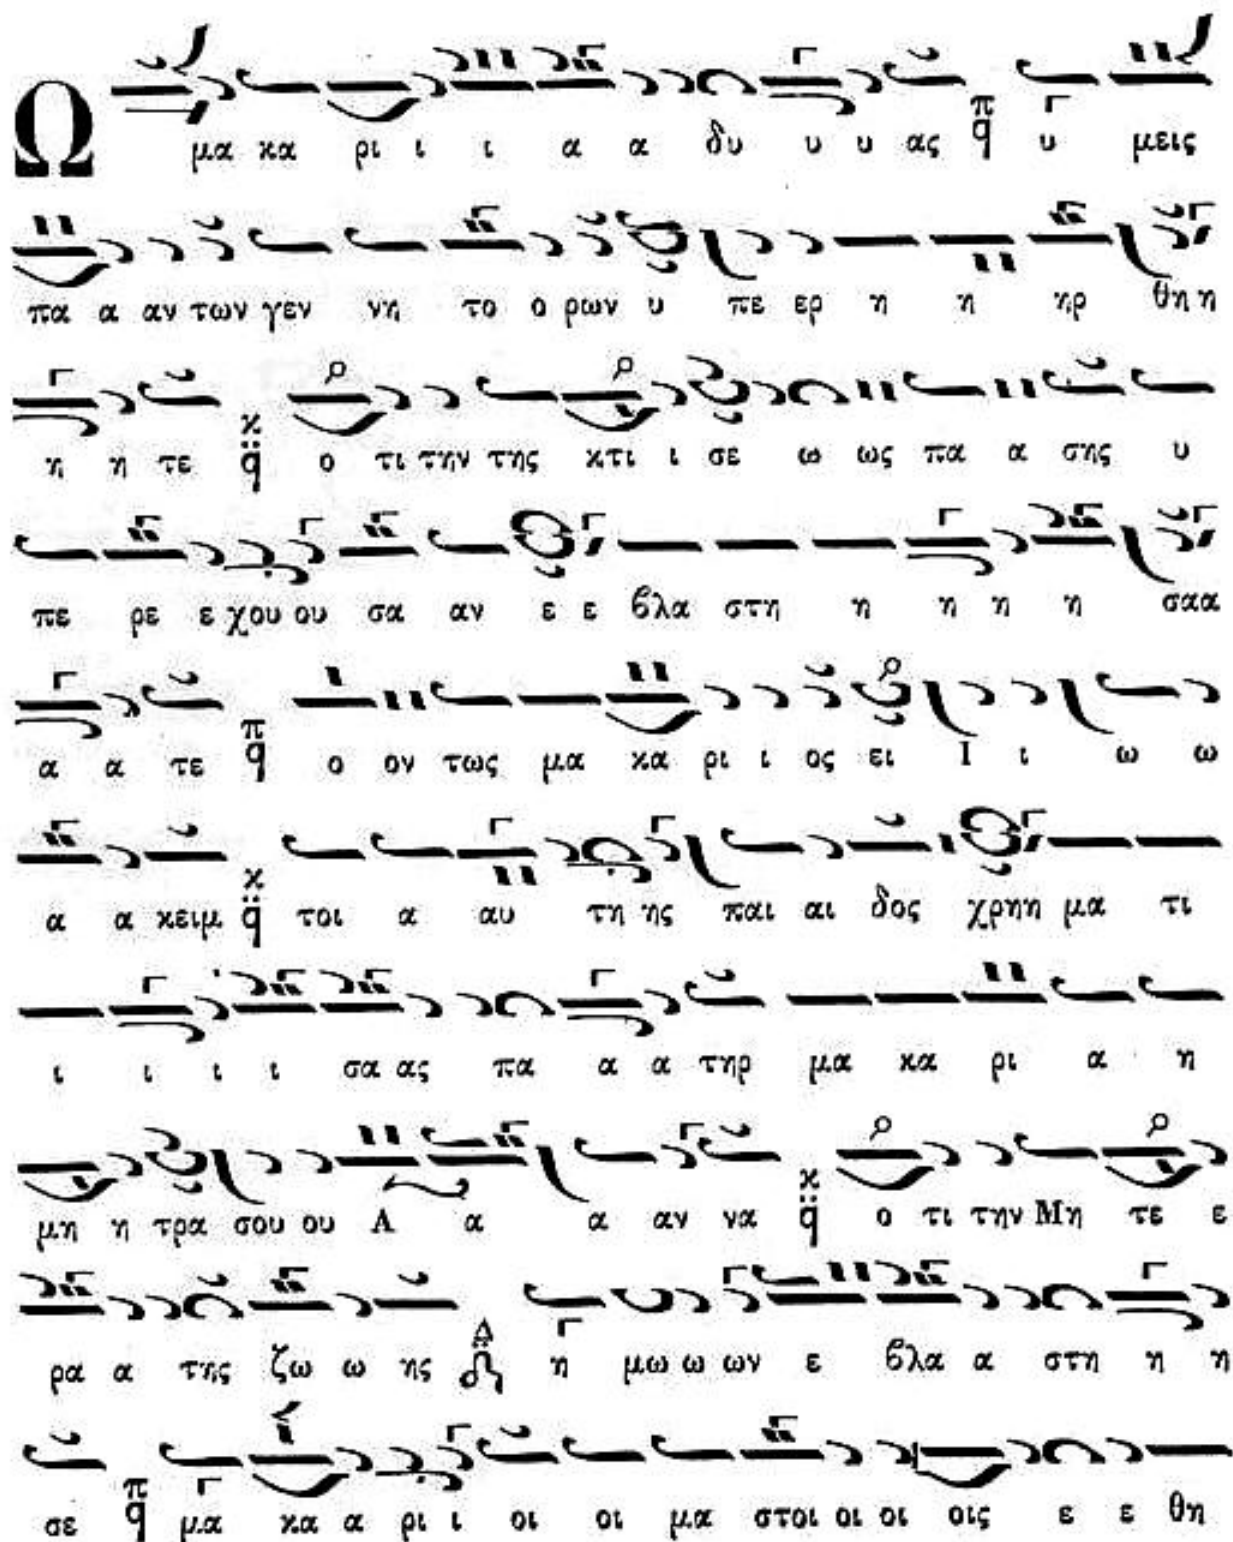 Ω μα κα ρι ι ι α α δυ υ υ ας π q υ μεις
πα α αν των γεν νη το ο ρων υ πε ερ η η ηρ θη η
η η τε κ q ο τι την της κτι ι σε ω ως πα α σης υ
πε ρε ε χου ου σα αν ε ε βλα στη η η η η σαα
α α τε π q ο ον τως μα κα ρι ι ος ει Ι ι ω ω
α α κειμ κ q τοι α αυ τη ης παι αι δος χρηη μα τι
ι ι ι ι σα ας πα α α τηρ μα κα ρι α η
μη η τρα σου ου Α α α αν να κ q ο τι την Μη τε ε
ρα α της ζω ω ης Δ η μω ω ων ε βλα α στη η η
σε π q μα κα α ρι ι οι οι μα στοι οι οι οις ε ε θη